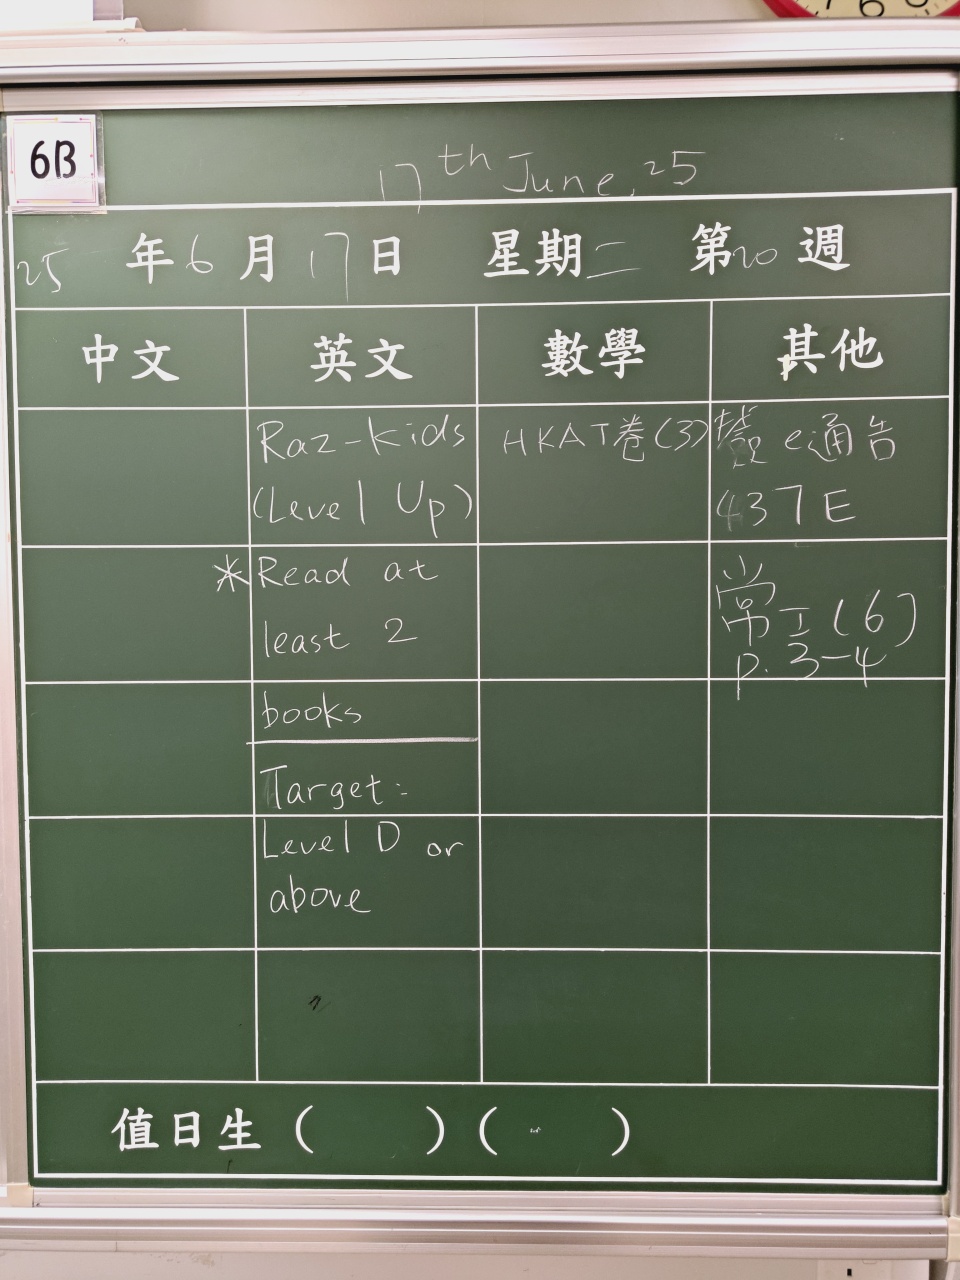 6B
17th June, 25
25 年 6 月 17 日 星期 二 第 20 週
中文 英文 數學 其他
Raz-kids
(Level Up)
* Read at
least 2
books
Target:
Level D or
above
HKAT卷(3)
e通告
437E
常工(6)
p. 3-4
值日生 ( ) ( )